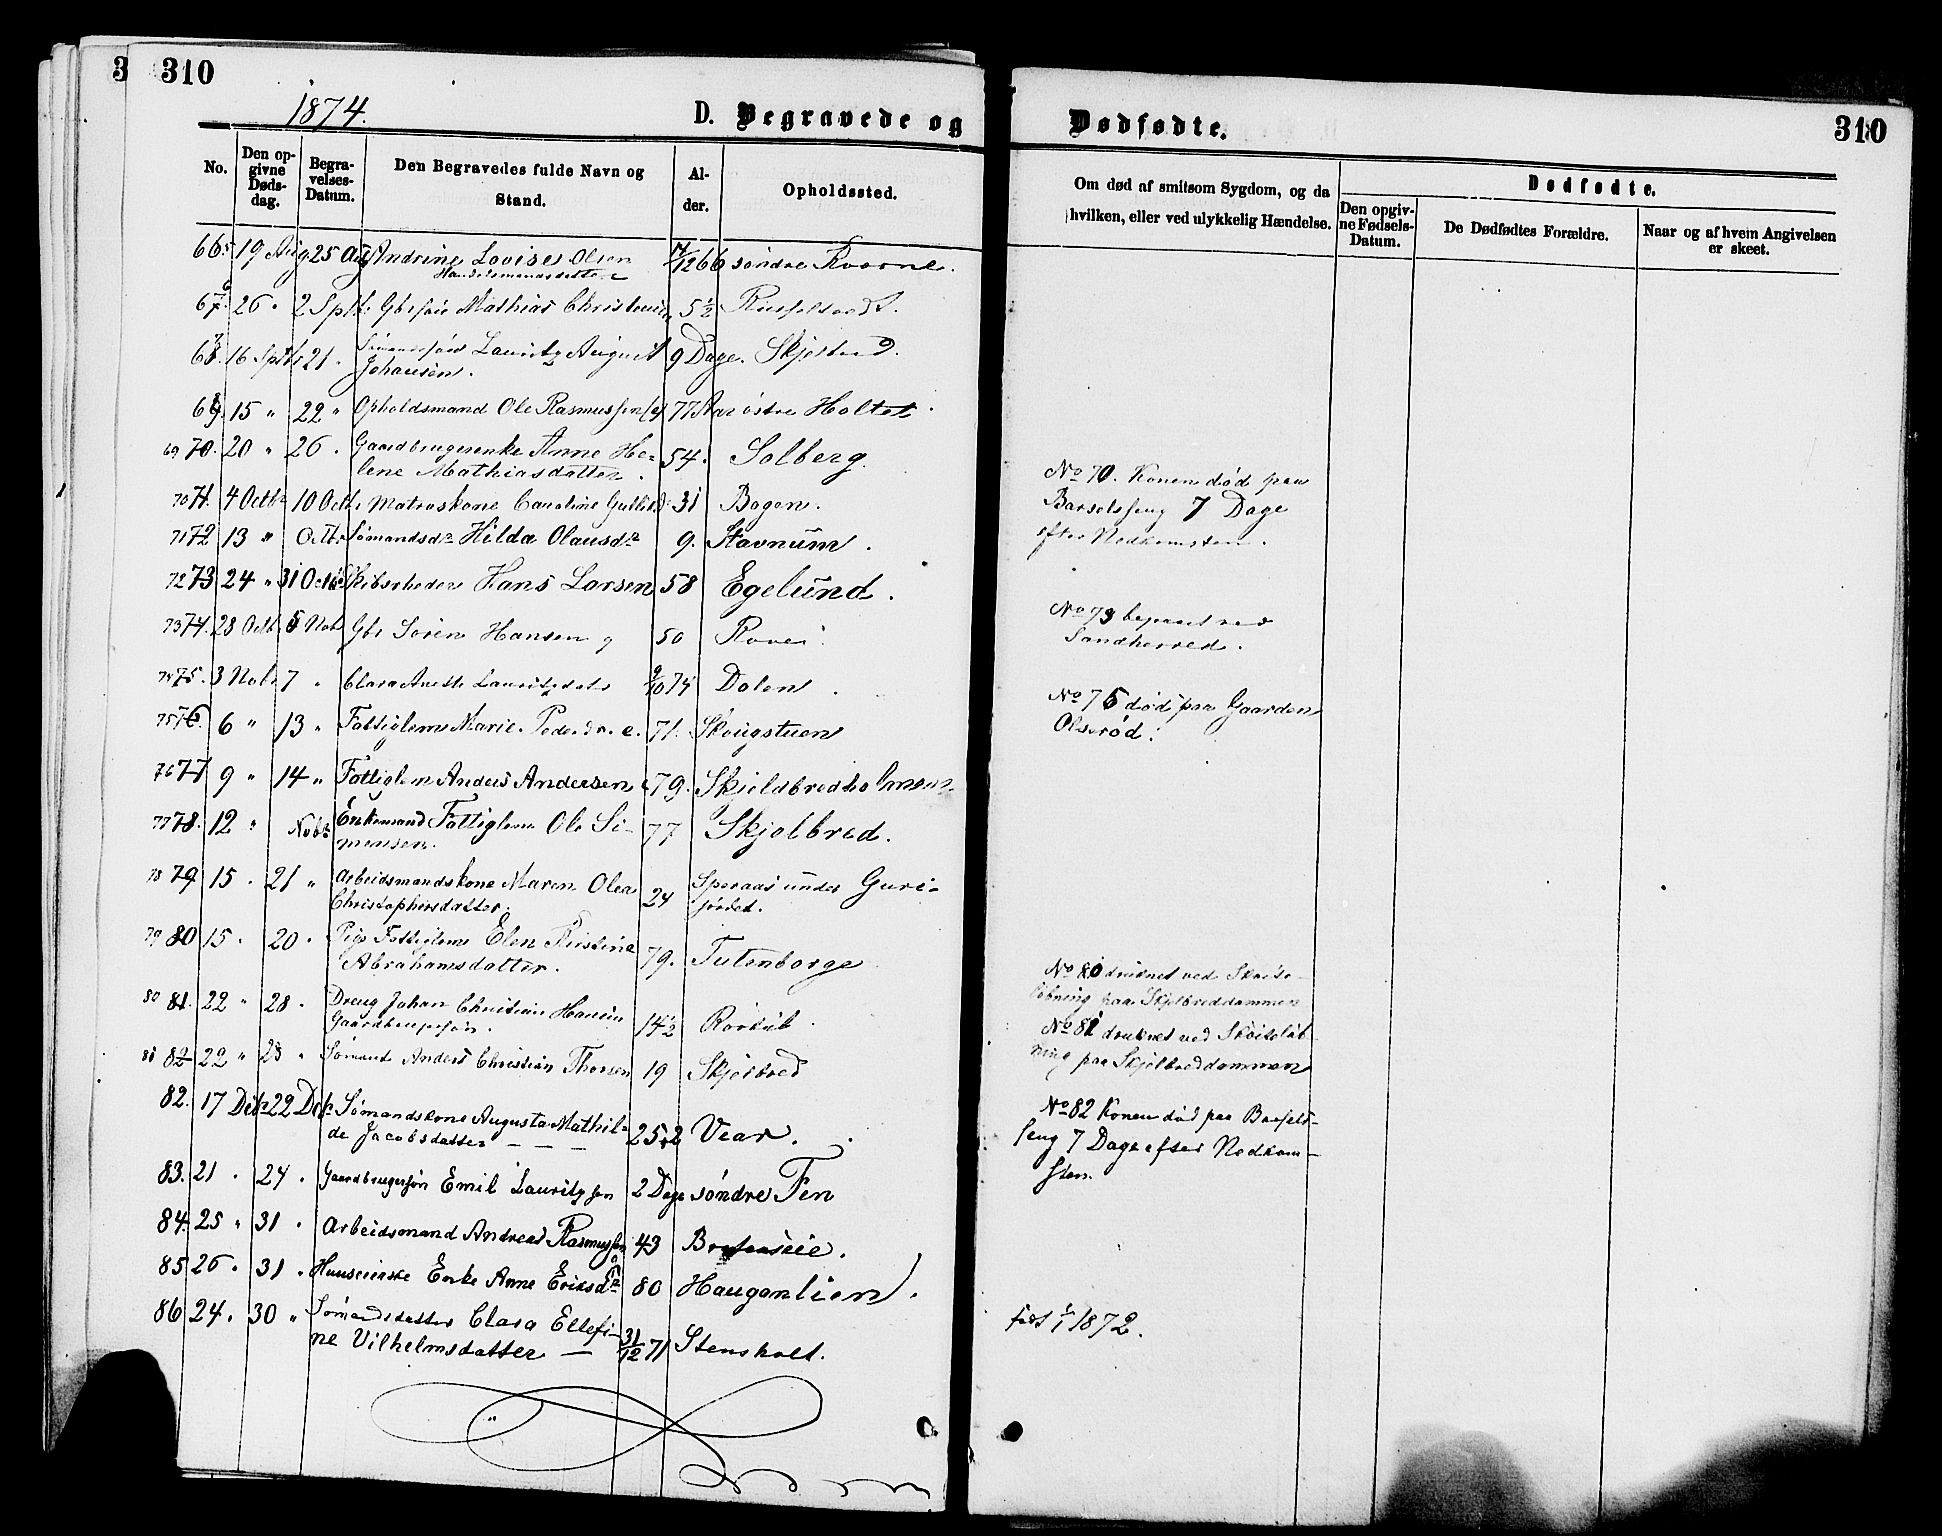 3 310
1874.
D. Begravede og
No.
Den op-
givne
Døds-
dag.
Begra-
velses-
Datum.
Den Begravedes fulde Navn og
Stand.
Al-
der.
Opholdssted.
19 Aug 25 Aug Andrine Lovise Olsen 66 søndre
26 " 2 Sptb. Gbrsøn Mathias 5½
16 Sptbr 21 . Lauritz August 9 Dage.
Johansen.
15 " 22 " Opholdsmand Ole Rasmussen 77 Aar østre Holtet
69 70. 20 " 26 . Gaardbrugerenke Anne He- 54. Solberg.
lene Mathiasdatter.
70 71. 4 Octbr 10 Octbr Matroskone Caroline 31 Bogen.
71 72 13 " Octb. Sømandsdr Hilda Olausdr 9. Stavnum.
72 73 24 " 31 Octbr Skibsrheder Hans Larsen 58 Egelund.
73 74. 28 Octb. 5 Nob Gbr Søren Hansen 50
74 75. 3 Nobr 7 " Clara 9/10 74 Dalen.
75 76. 6 " 13 " Fattiglem Marie 71. Skougstuen
76 77 9 " 14 " Fattiglem Anders Andersen 79. Skjeldbredholmen
77 78. 12 " Nobr Enkemand Fattiglem Ole Si- 77 Skjelbred.
mensen.
78 79 15 . 21 " Arbeidsmandskone Maren Olea 24 under Guri-
Christophersdatter. jordet.
79 80 15 . 20 . Pige Fattiglem Elen Kristine 79. Tutenborge
Abrahamsdatter.
80 81. 22 " 28 . Dreng Johan Christian Hansen 14½
Gaardbrugersøn.
81 82 22 " 28 " Sømand Anders Christian Thorsen 19 Skjelbred
82. 17 Decbr 22 Decbr Sømandskone Augusta Mathil- 25½ Vear.
de Jacobsdatter
83. 21 . 24 . Gaardbrugersøn Emil Lauritzsen 2 Dage søndre Fen
84. 25 " 31 . Arbeidsmand Andreas Rasmussen 43
85 26 . 31 . Huuseierske Enke Anne Eriksdr 80 Hauganlien.
86 24 . 30 " Sømandsdatter Clara Ellefi- 31/12 71 Stensholt.
ne Vilhelmsdatter
Dødfødte.
310
Om død af smitsom Sygdom, og da
hvilken, eller ved ulykkelig Hændelse.
Dødfødte.
Den opgiv-
ne Fødsels-
Datum.
De Dødfødtes Forældre.
Naar og af hvem Angivelsen
er skeet.
No 70. Konen død paa
Barselsseng 7 Dage
efter Nedkomsten.
No 73 begravet ved
Sandherred.
No 76 død paa Gaarden
Olsrød.
No 80 druknet ved Skøite-
løbning paa Skjelbreddammen
No 81 druknet ved Skøiteløb-
ning paa Skjelbreddammen
No 82 Konen død paa Barsels-
seng 7 Dage efter Nedkom-
sten.
født 1/1 1872.